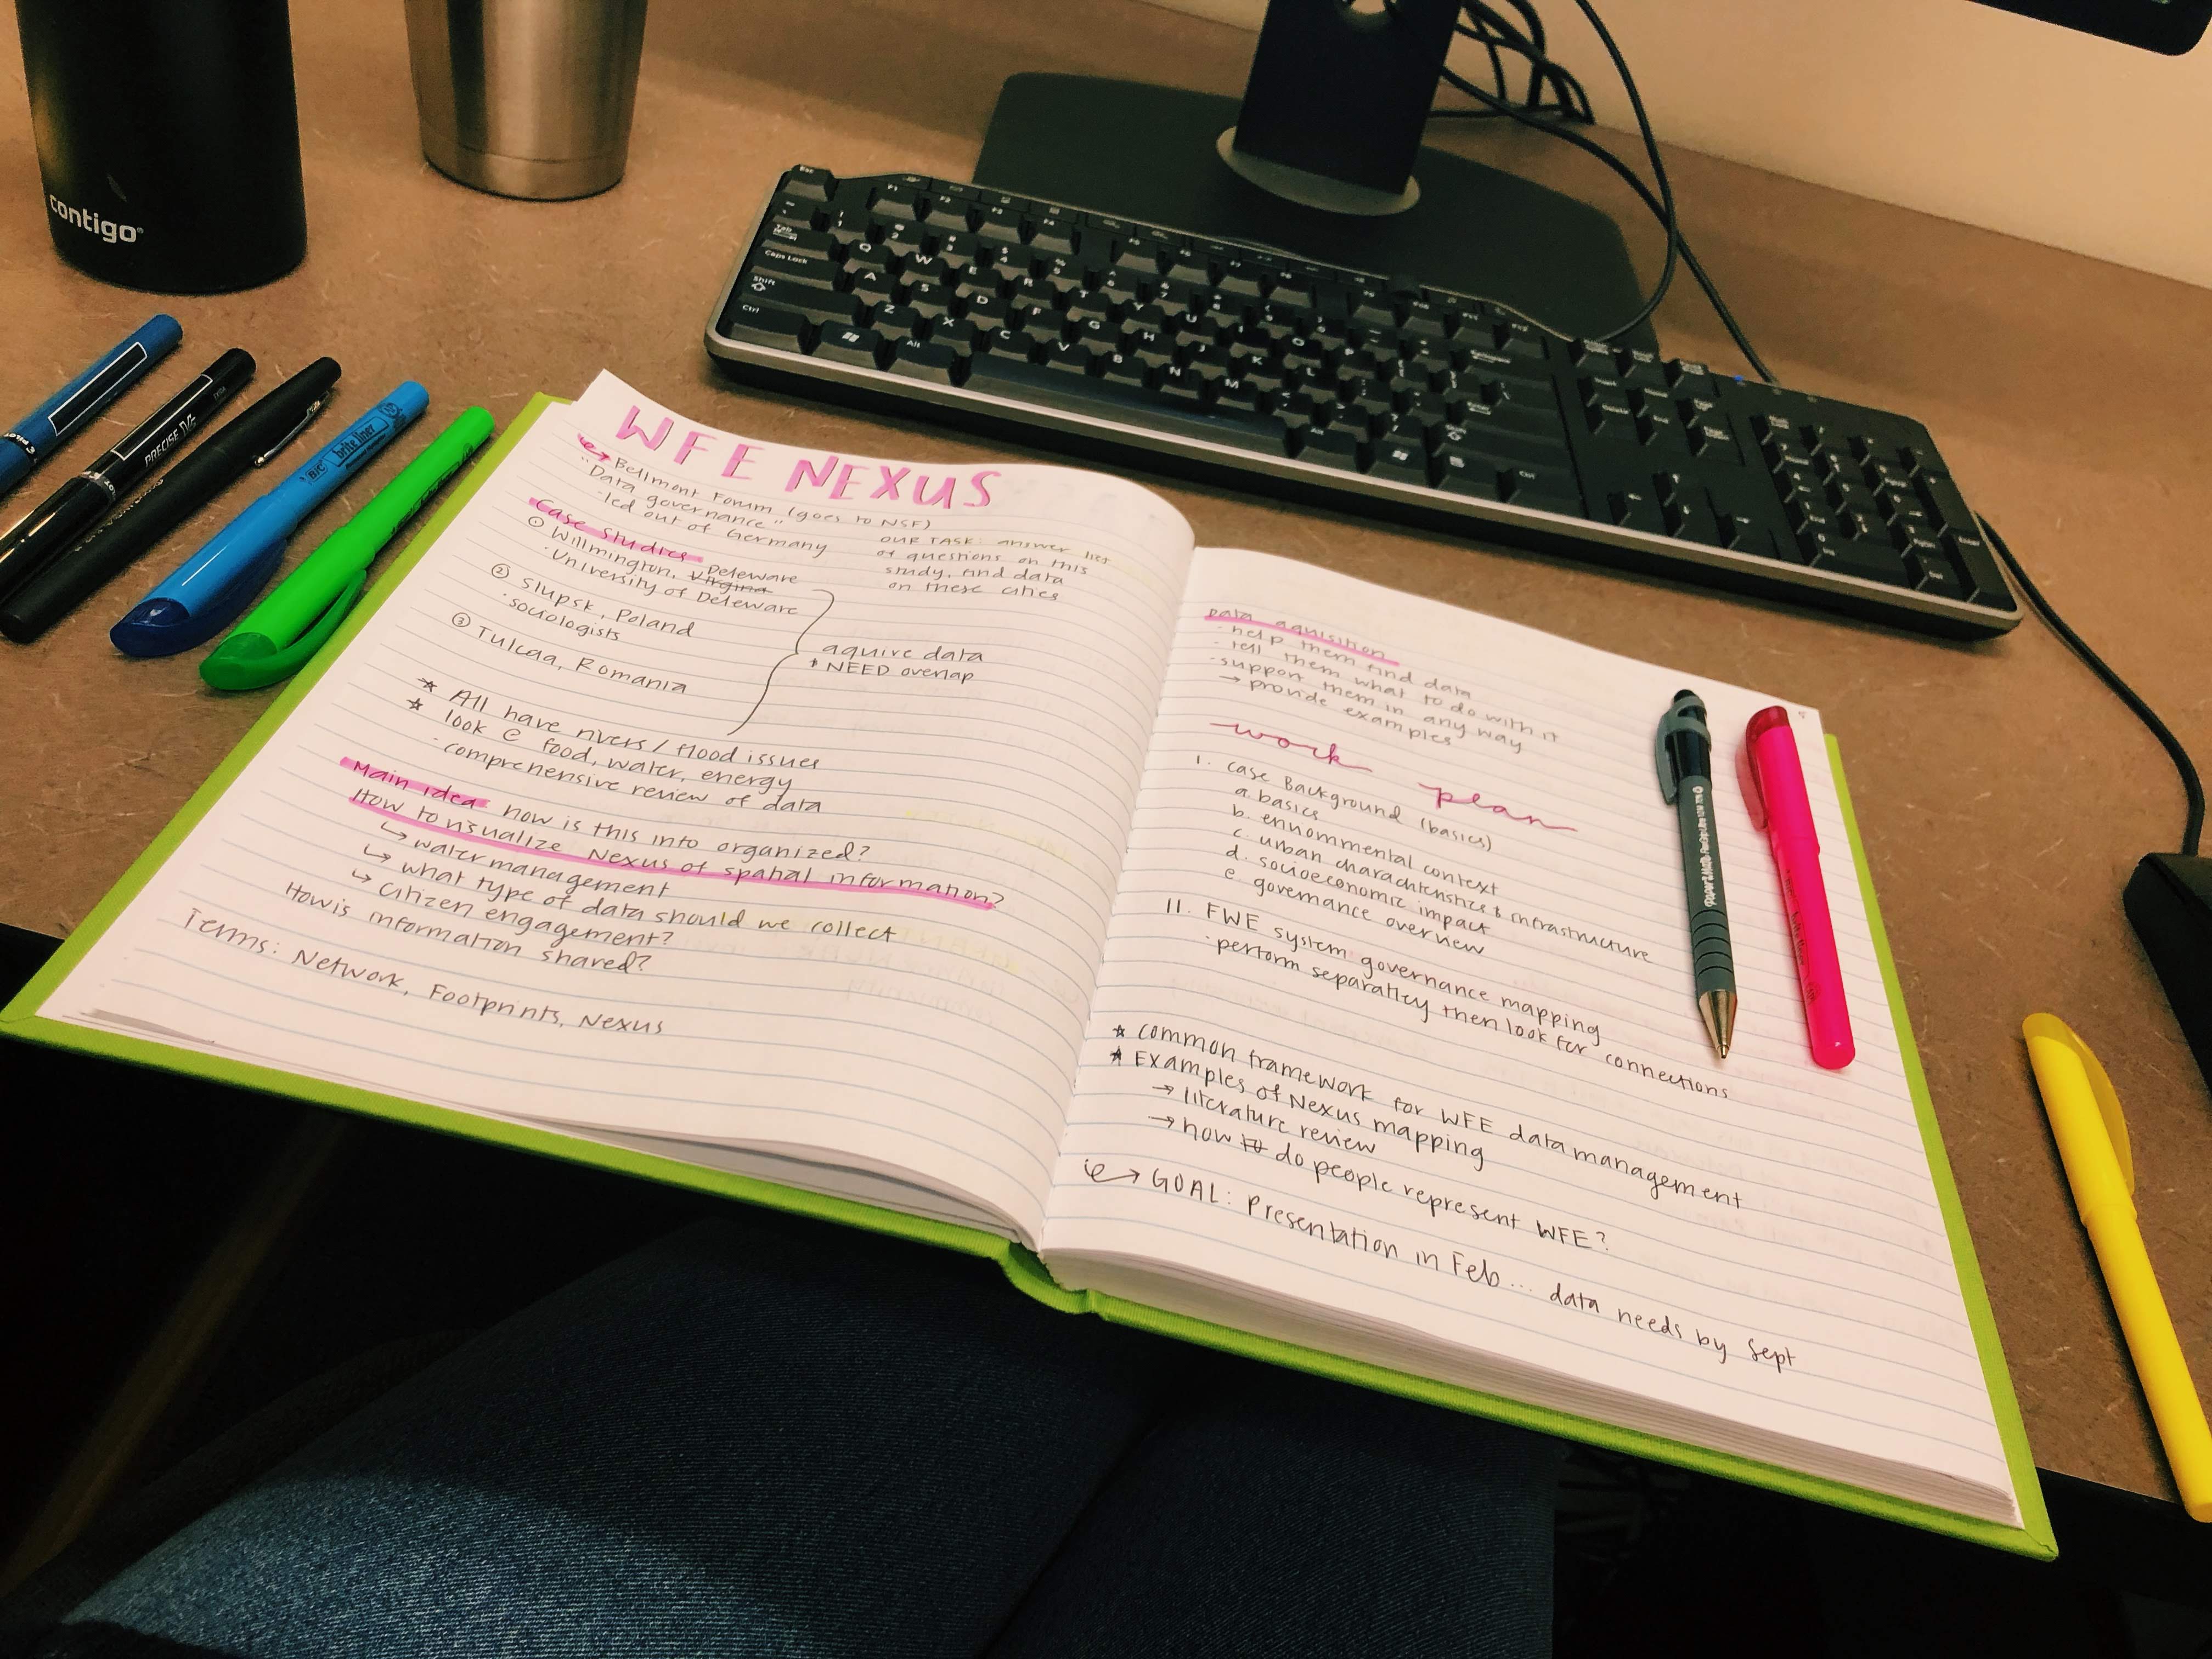 contigo
PRECISE V5
BIC brite liner
WFE NEXUS
Bellmont Forum (goes to NSF)
"Data governance"
·led out of Germany
OUR TASK: answer list
of questions on this
study, find data
on these cities
Case Studies
① Willmington, Virgina Deleware
·University of Deleware
② Slupsk, Poland
·sociologists
③ Tulcaa, Romania
aquire data
* NEED overlap
☆ All have rivers / flood issues
☆ look @ food, water, energy
·comprehensive review of data
Main idea how is this into organized?
How to visualize Nexus of spatial information?
↳ water management
↳ what type of data should we collect
↳ citizen engagement?
How is information shared?
Terms: Network, Footprints, Nexus
Data aquisition
- help them find data
- tell them what to do with it
·support them in any way
→ provide examples
work plan
I. Case Background (basics)
a. basics
b. environmental context
c. urban charachteristics & infrastructure
d. socioeconomic impact
e. governance overview
II. FWE system governance mapping
·perform separatley then look for connections
☆ common framework for WFE data management
☆ Examples of Nexus mapping
→ literature review
→ how to do people represent WFE?
→ GOAL: Presentation in Feb... data needs by Sept
Esc
Tab
Caps Lock
Shift
Ctrl
Alt
F1 F2 F3 F4
Q W E R T Y U I O P
A S D F G H J K L
Z X C V B N M